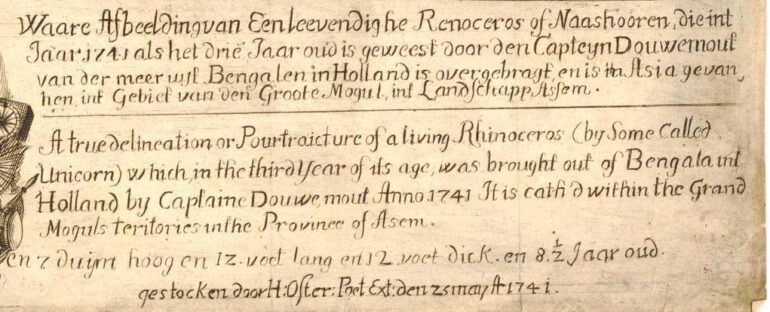 Waare Afbeelding van Een leevendighe Renoceros of Naashooren, die int
Jaar 1741 als het drie Jaar oud is geweest door den Capteyn Douwemout
van der meer uyt Bengalen in Holland is overgebragt, en is in Asia gevan
hen, int Gebiet van den Groote Mogul, int Landschapp Assem.
A true delineation or Pourtraicture of a living Rhinoceros (by Some Called
Unicorn) which, in the third Year of its age, was brought out of Bengala int
Holland by Captaine Douwe mout Anno 1741 It is cath'd within the Grand
Moguls teritories in the Province of Asem.
en 7 duijm hoog en 12. voet lang en 12. voet dick. en 8. ½ Jaar oud.
gestocken door H: Oster: Poet Ext: den 25 may A 1741.